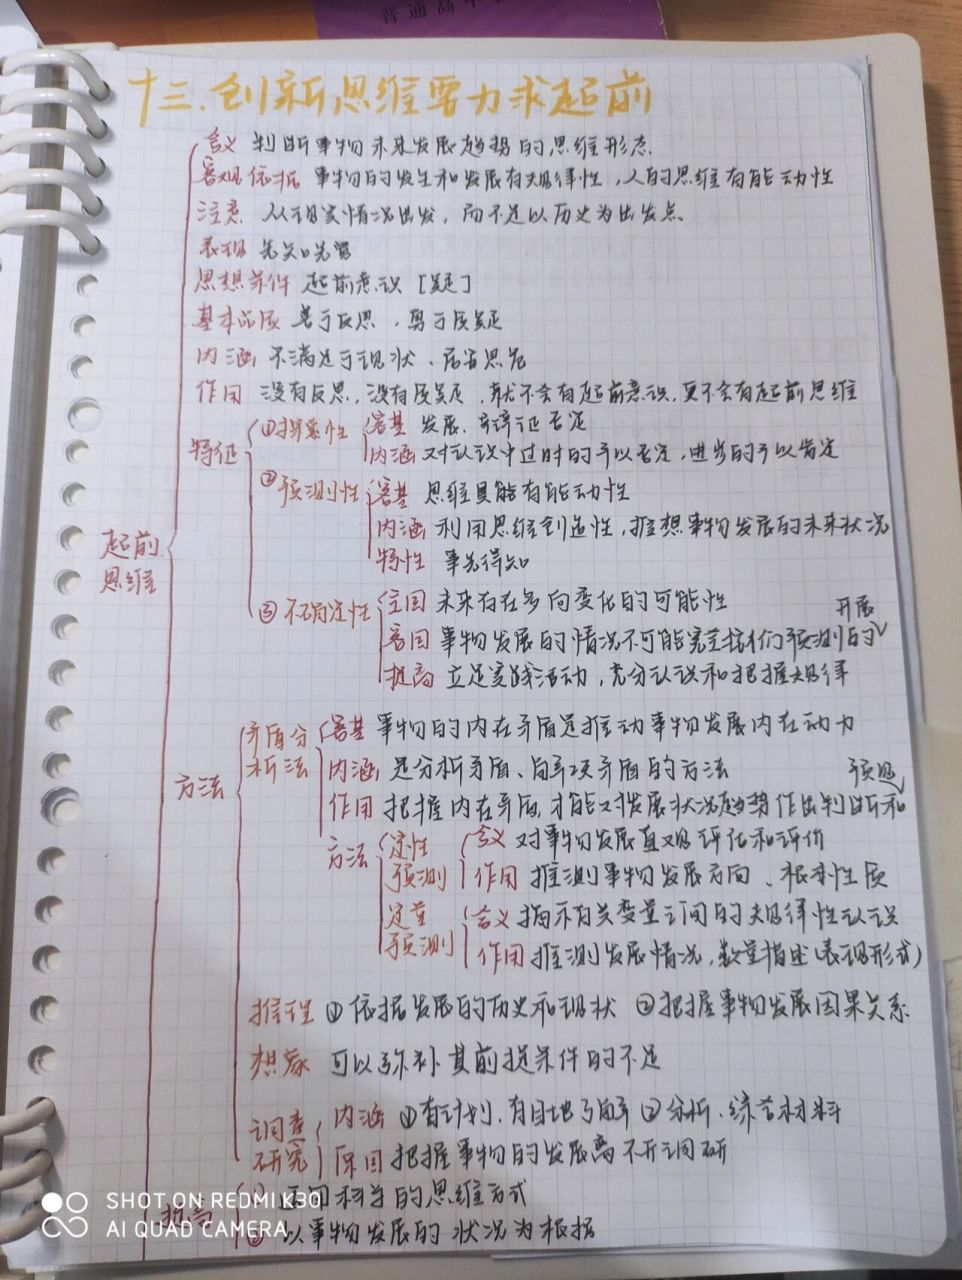 普通高中
十三.创新思维要力求超前
含义 判断事物未来发展趋势的思维形态.
客观依据 事物的发生和发展有规律性,人的思维有能动性
注意 从现实情况出发,而不是以历史为出发点.
表现 先知先觉
思想条件 超前意识[是]
基本品质 善于反思,勇于质疑
内涵 不满足于现状、居安思危
作用 没有反思,没有质疑,就不会有超前意识,更不会有超前思维
特征 ①探索性 客基 发展,辩证否定
内涵 对认识中过时的予以否定,进步的予以肯定
②预测性 客基 思维具能有能动性
内涵 利用思维创造性,推想事物发展的未来状况
特性 事先得知
超前思维
③不确定性 主因 未来存在多向变化的可能性
开展
客因 事物发展的情况不可能完全按我们预测的
提高 立足实践活动,充分认识和把握规律
方法 矛盾分析法 客基 事物的内在矛盾是推动事物发展内在动力
内涵 是分析矛盾、解决矛盾的方法
预见
作用 把握内在矛盾,才能对发展状况趋势作出判断和
方法 定性预测 含义 对事物发展直观评估和评价
作用 推测事物发展方向、根本性质
定量预测 含义 揭示有关变量之间的规律性认识
作用 推测发展情况,数量描述(表现形式)
推理 ①依据发展的历史和现状 ②把握事物发展因果关系
想象 可以弥补其前提条件的不足
调查研究 内涵 ①有计划,有目地了解 ②分析.综合材料
原因 把握事物的发展离不开调研
提高 ① 运用科学的思维方式
② 以事物发展的状况为根据
SHOT ON REDMI K30
AI QUAD CAMERA